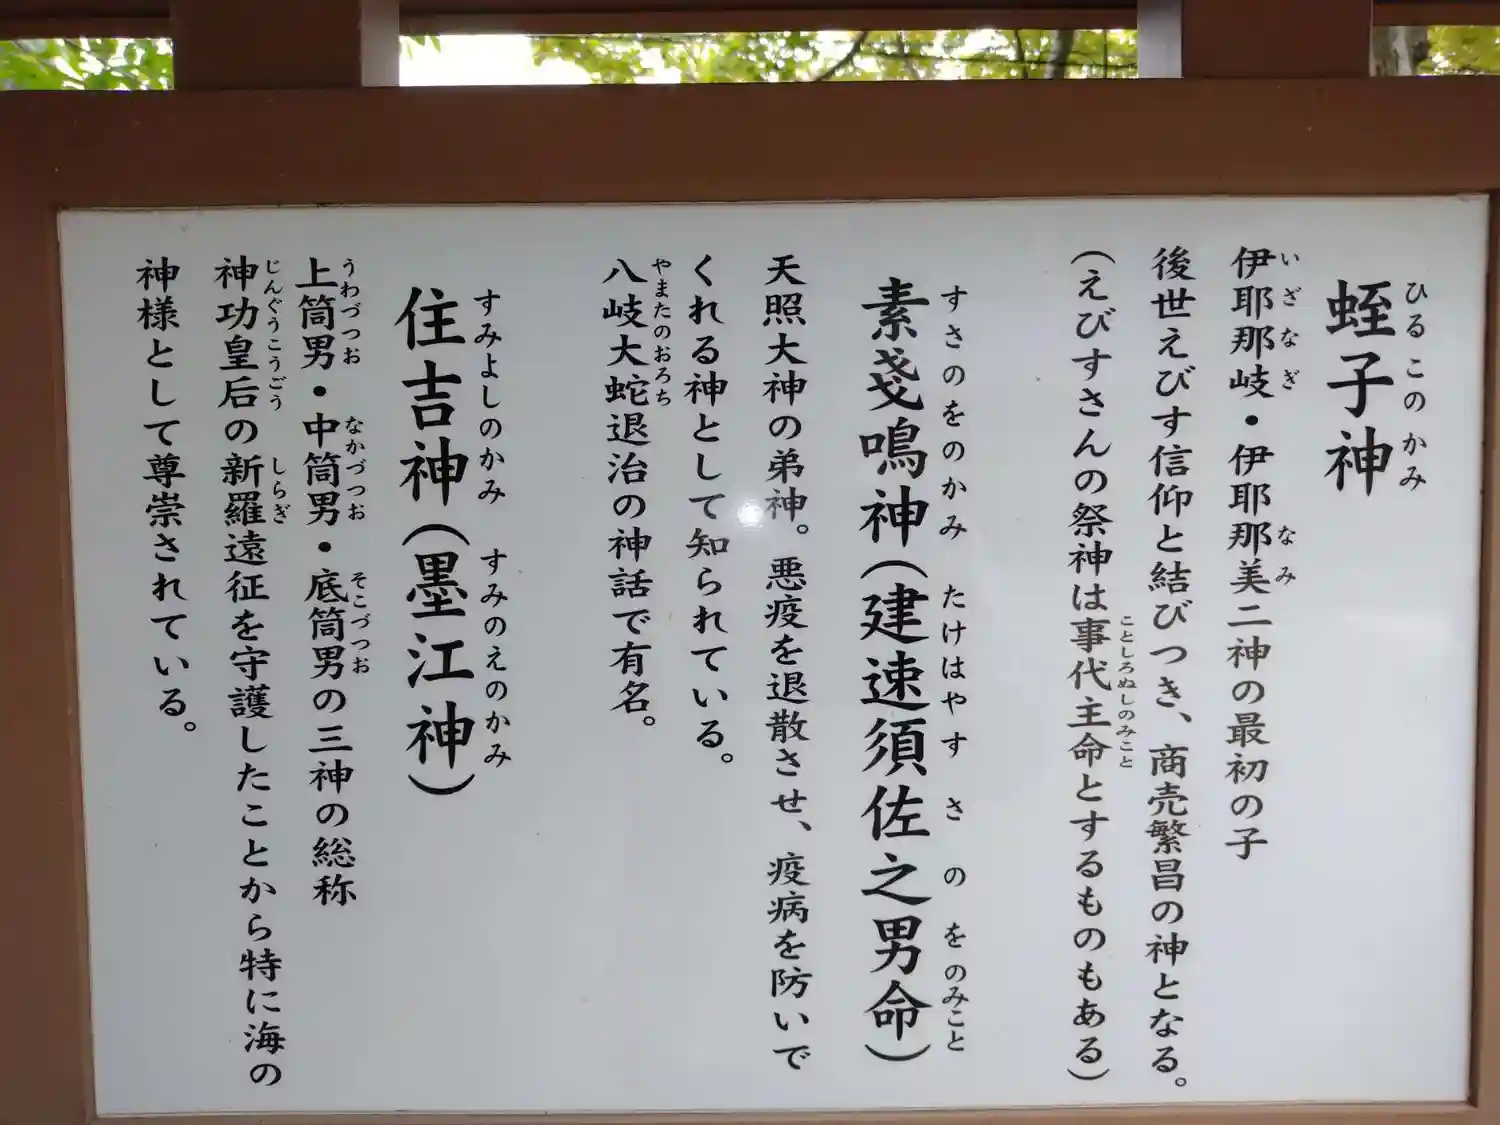 蛭子神
ひるこのかみ
伊耶那岐・伊耶那美二神の最初の子
いざなぎ
なみ
後世えびす信仰と結びつき、商売繁昌の神となる。
(えびすさんの祭神は事代主命とするものもある)
ことしろぬしのみこと
素戔鳴神(建速須佐之男命)
すさのをのかみ
たけはやすさのをのみこと
天照大神の弟神。悪疫を退散させ、疫病を防いで
くれる神として知られている。
八岐大蛇退治の神話で有名。
やまたのおろち
住吉神(墨江神)
すみよしのかみ
すみのえのかみ
上筒男・中筒男・底筒男の三神の総称
うわづつお
なかづつお
そこづつお
神功皇后の新羅遠征を守護したことから特に海の
じんぐうこうごう
しらぎ
神様として尊崇されている。